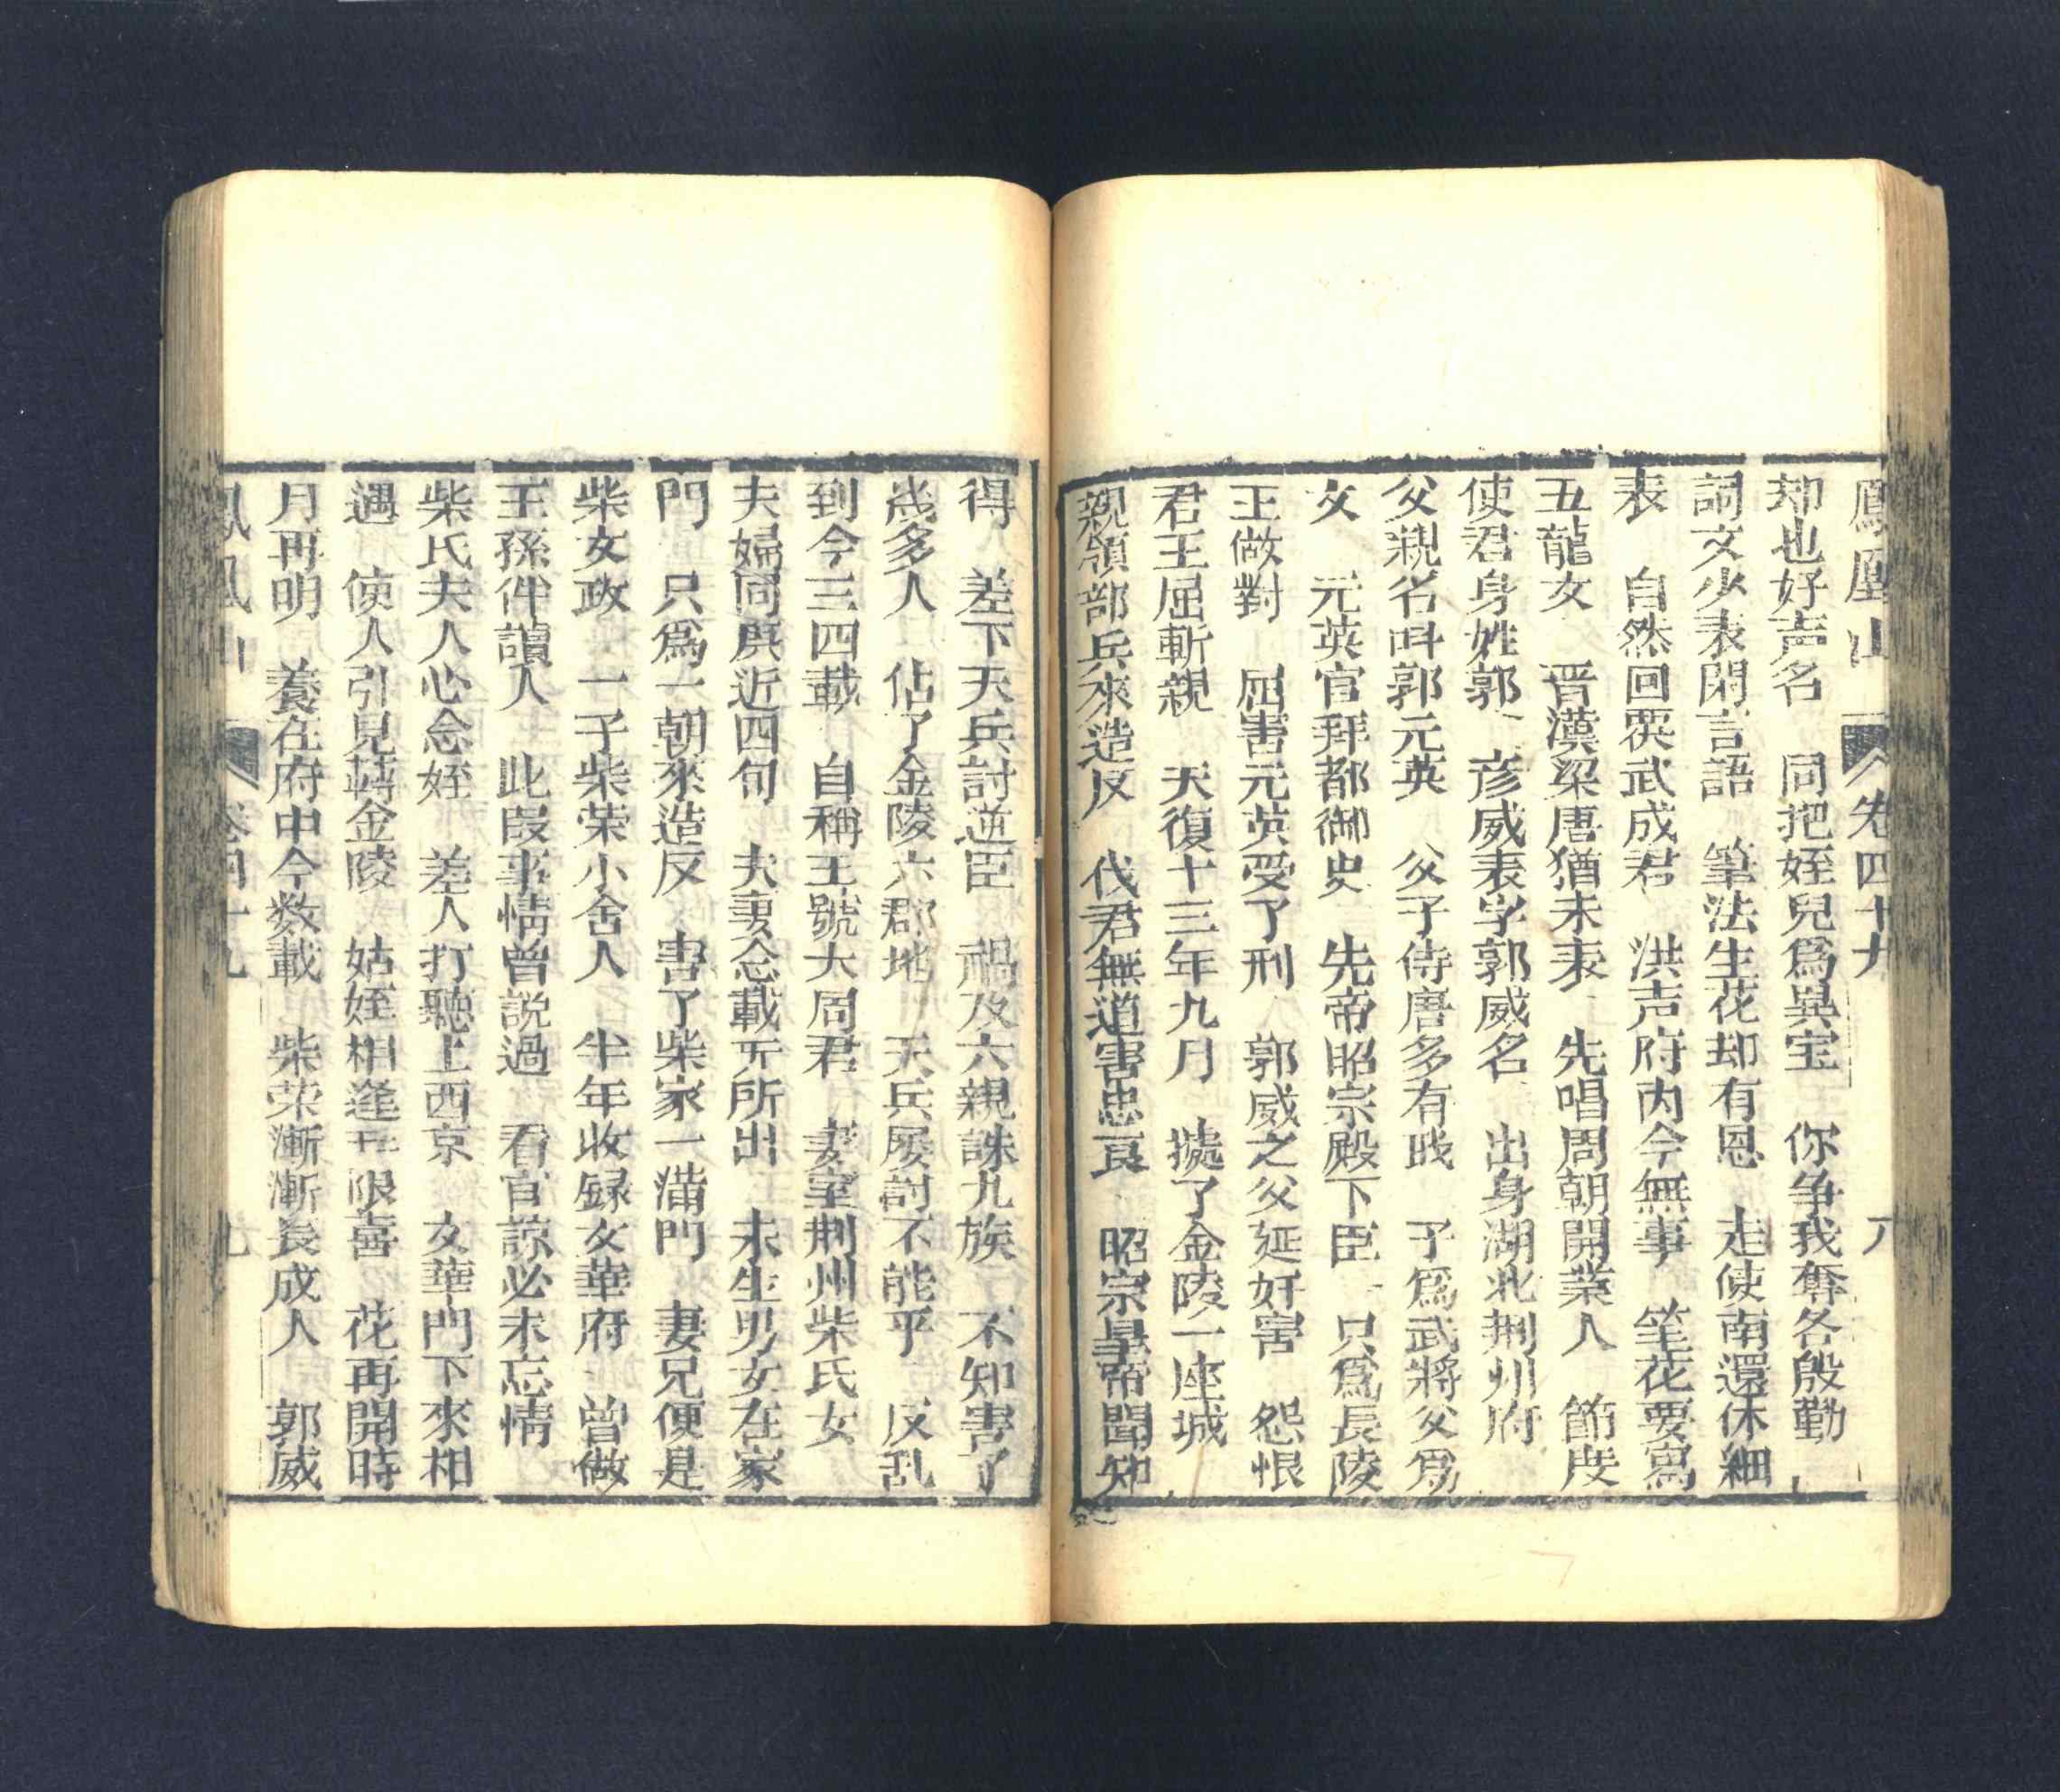 鳳凰山 卷四十九 八
却也好声名 同把姪兒爲異宝 你争我奪各殷勤
詞文少表閑言語 筆法生花却有恩 走使南還休細
表 自然回覆武成君 洪声府内今無事 笔花要寫
五龍女 晋漢梁唐猶未表 先唱周朝開業人 節度
使君身姓郭 彦威表字郭威名 出身湖北荆州府
父親名叫郭元英 父子侍唐多有戝 子爲武將父爲
文 元英官拜都御史 先帝昭宗殿下臣 只爲長陵
王做對 屈害元英受了刑 郭威之父延奸害 怨恨
君王屈斬親 天復十三年九月 據了金陵一座城
親領部兵來造反 伐君無道害忠良 昭宗皇帝聞知
得 差下天兵討逆臣 禍及六親誅九族 不知害了
幾多人 佔了金陵六郡地 天兵屡討不能平 反乱
到今三四載 自稱王號大周君 妻室荆州柴氏女
夫婦同庚近四旬 夫妻念載旡所出 未生男女在家
門 只爲一朝來造反 害了柴家一滿門 妻兄便是
柴女政 一子柴荣小舍人 半年收録女華府 曾做
王孫伴讀人 此叚事情曾説過 看官諒必未忘情
柴氏夫人心念姪 差人打聽上西京 女華門下來相
遇 使人引見轉金陵 姑姪相逢旡限喜 花再開時
月再明 養在府中今数載 柴荣漸漸長成人 郭威
鳳凰山 卷四十九 九